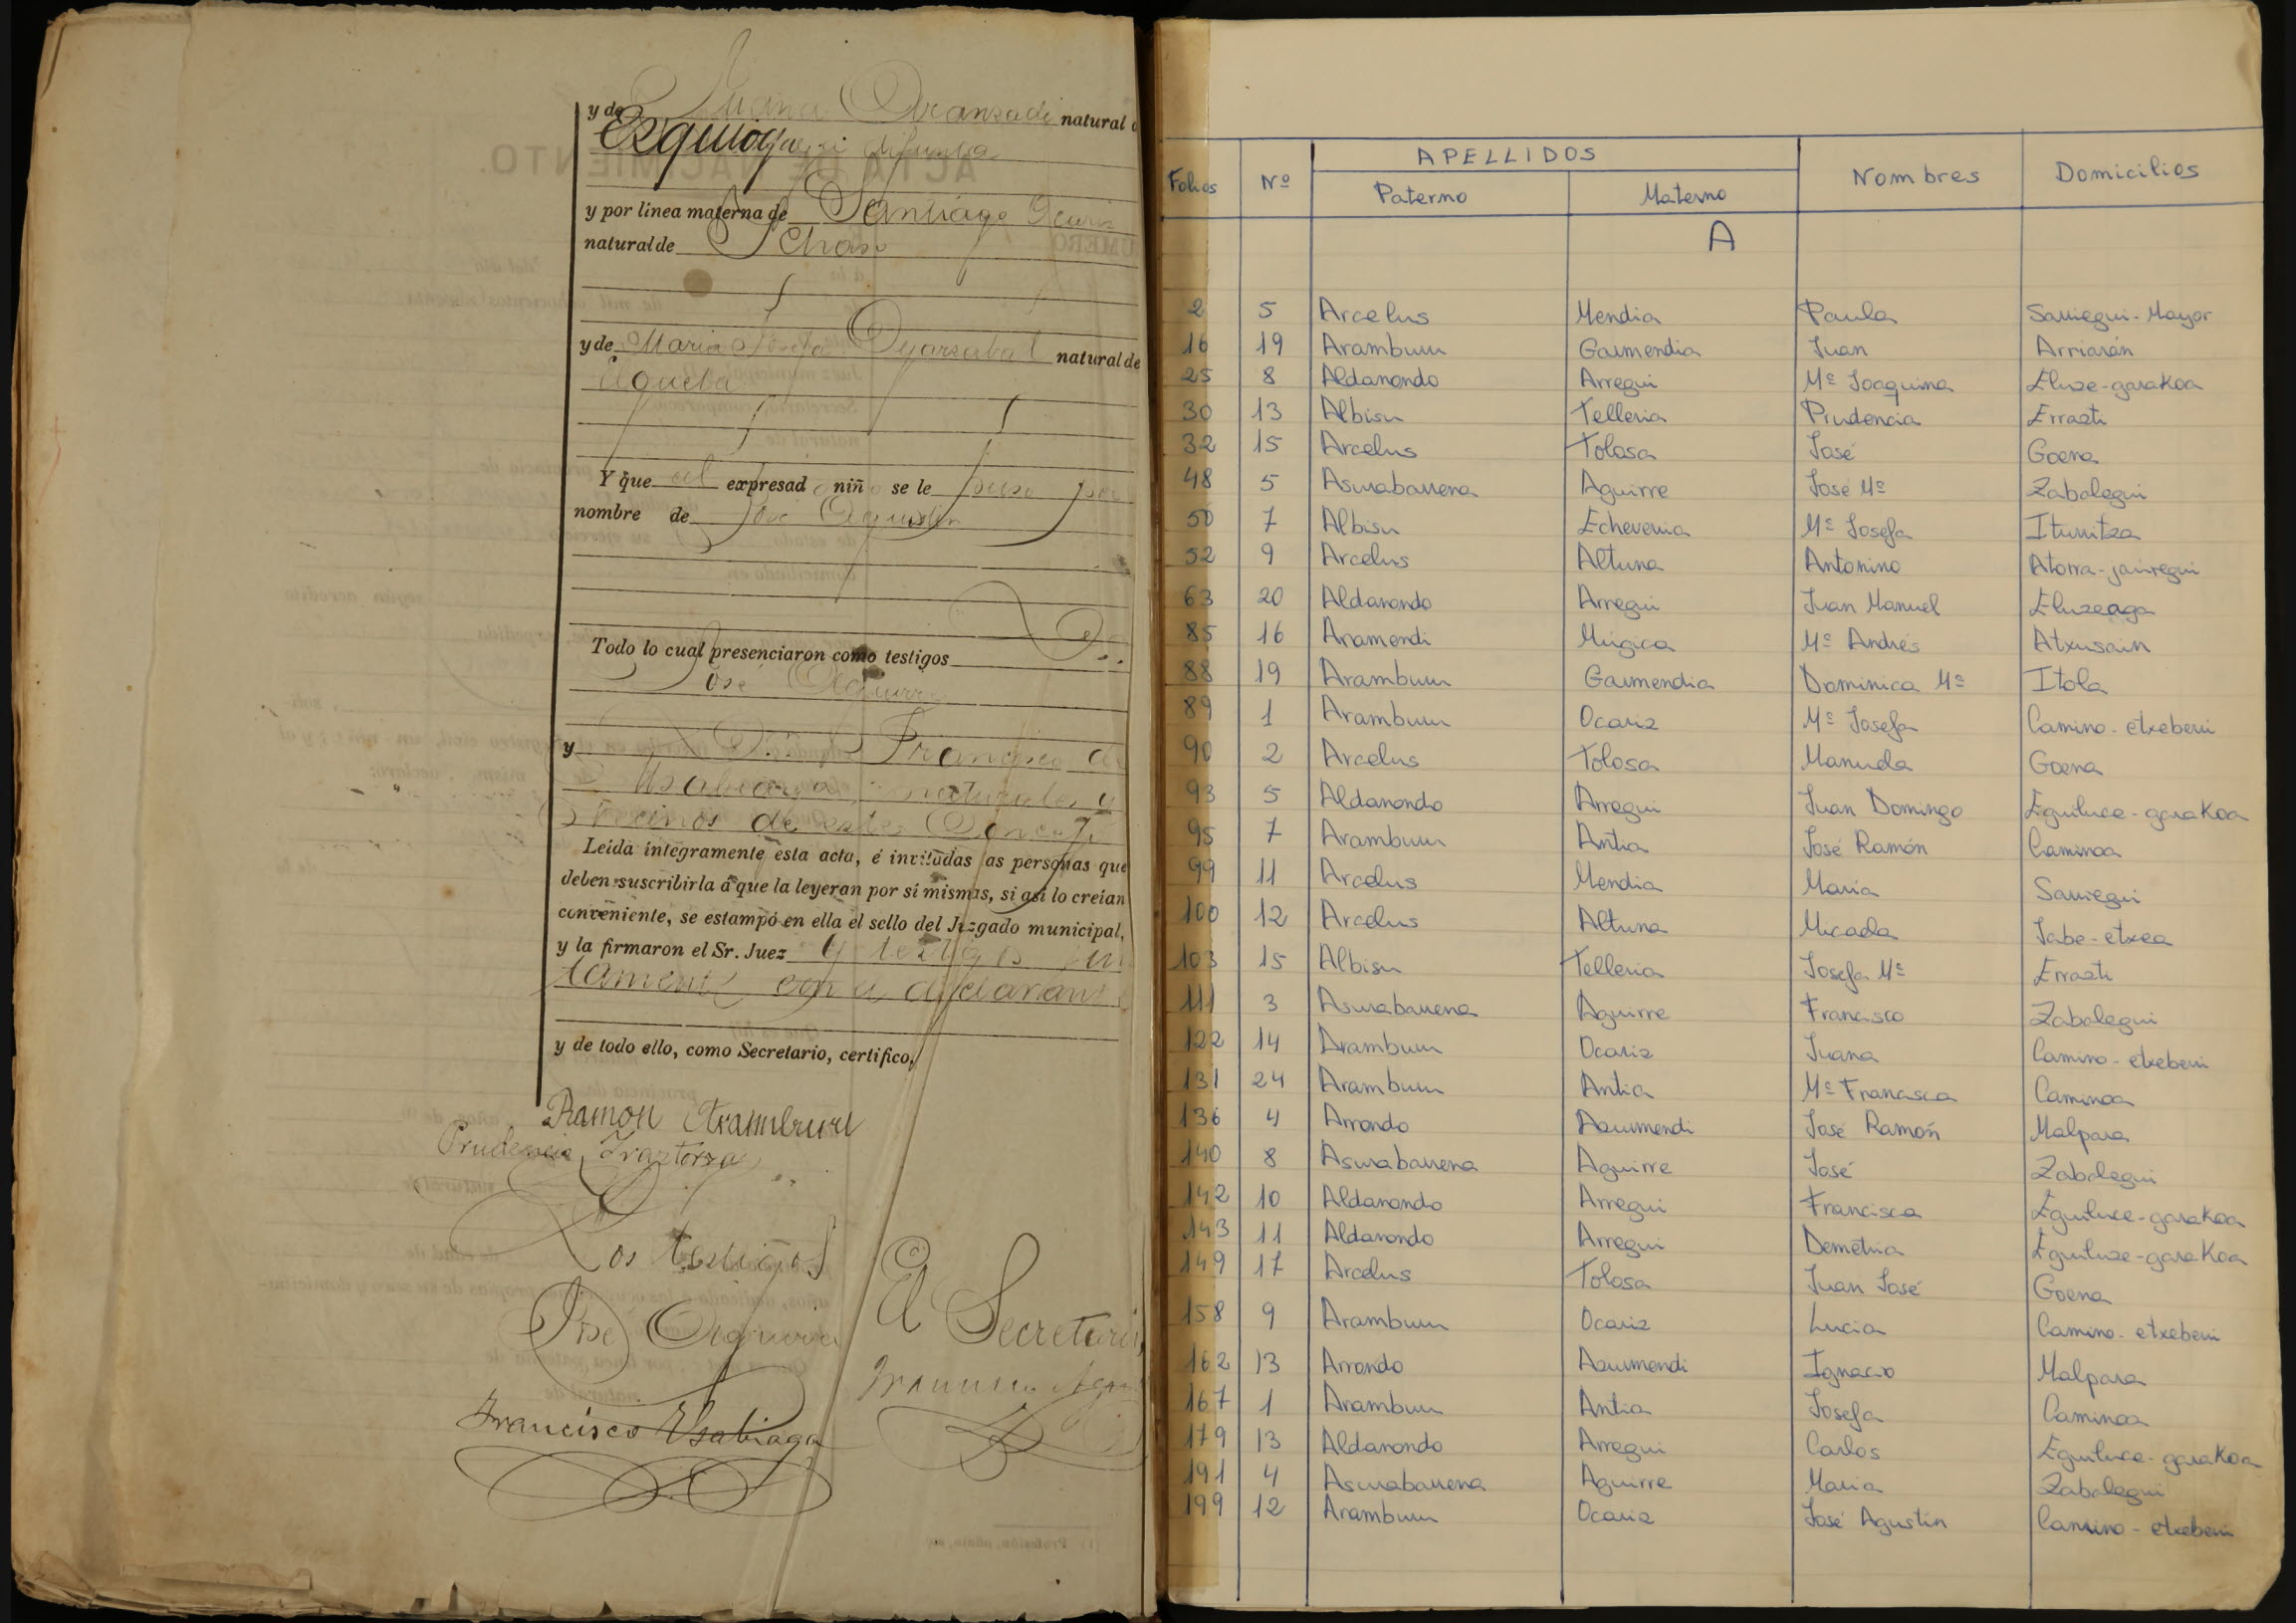 y de Juana Aranzadi natural d
Ezquioga y difunta
y por linea materna de Santiago Ocariz
natural de
y de Maria Josefa Oyarzabal natural de
Y que al expresado niño se le puso por
nombre de José Agustin
Todo lo cual presenciaron como testigos Dn
José Aguirre
y Dn Francisco de
Usabiaga naturales y
vecinos de este Concejo
Leida íntegramente esta acta, é invitadas las personas que
deben suscribirla á que la leyeran por sí mismas, si así lo creían
conveniente, se estampó en ella el sello del Juzgado municipal,
y la firmaron el Sr. Juez y testigos jun
tamente con el declarante
y de todo ello, como Secretario, certifico.
Ramon Aramburu
Prudencio Iraztorza
Los testigos
José Aguirre
El Secretario
Francisco Usabiaga
Folios Nº APELLIDOS Nombres Domicilios
Paterno Materno
A
2 5 Arcelus Mendia Paula Sarriegui-Mayor
16 19 Aramburu Garmendia Juan Arriarán
25 8 Aldanondo Arregui Mª Joaquina Eluze-garakoa
30 13 Albisu Telleria Prudencia Errazti
32 15 Arcelus Tolosa José Goena
48 5 Asurabarrena Aguirre José Mª Zabalegui
50 7 Albisu Echeverria Mª Josefa Iturritza
52 9 Arcelus Altuna Antonino Atorra-jauregui
63 20 Aldanondo Arregui Juan Manuel Eluzeaga
85 16 Aramendi Múgica Mª Andrés Atxusain
88 19 Aramburu Garmendia Dominica Mª Itola
89 1 Aramburu Ocariz Mª Josefa Camino-etxeberri
90 2 Arcelus Tolosa Manuela Goena
93 5 Aldanondo Arregui Juan Domingo Eguiluce-garakoa
95 7 Aramburu Antia José Ramón Caminoa
99 11 Arcelus Mendia Maria Sarriegui
100 12 Arcelus Altuna Micaela Jabe-etxea
103 15 Albisu Telleria Josefa Mª Errazti
111 3 Asurabarrena Aguirre Francisco Zabalegui
122 14 Aramburu Ocariz Juana Camino-etxeberri
131 24 Aramburu Antia Mª Francisca Caminoa
136 4 Arrondo Azurmendi José Ramón Malpasa
140 8 Asurabarrena Aguirre José Zabalegui
142 10 Aldanondo Arregui Francisca Eguiluce-garakoa
143 11 Aldanondo Arregui Demetria Eguiluze-garakoa
149 17 Arcelus Tolosa Juan José Goena
158 9 Aramburu Ocariz Lucia Camino-etxeberri
162 13 Arrondo Azurmendi Ignacio Malpasa
167 1 Aramburu Antia Josefa Caminoa
179 13 Aldanondo Arregui Carlos Eguiluce-garakoa
191 4 Asurabarrena Aguirre Maria Zabalegui
199 12 Aramburu Ocariz José Agustin Camino-etxeberri